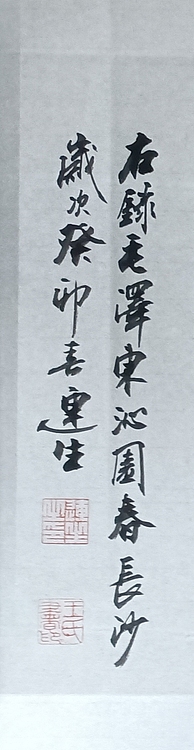 右錄毛澤東沁園春長沙
歲次癸卯喜連生
王氏